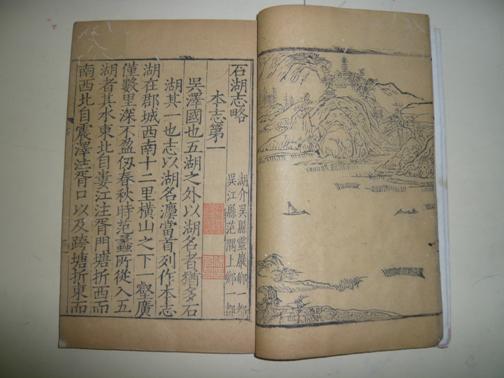 石湖志略
本志第一
湖介吳縣靈巖鄉
吳江縣范隅上鄉一都
吳澤國也五湖之外以湖名者猶多石
湖其一也志以湖名灋當首列作本志
湖在郡城西南十二里橫山之下一壑廣
僅數里深不盈仭春秋時范蠡所從入五
湖者其水東北自婁江注胥門塘折西而
南西北自震澤注胥口以及跨塘折東而